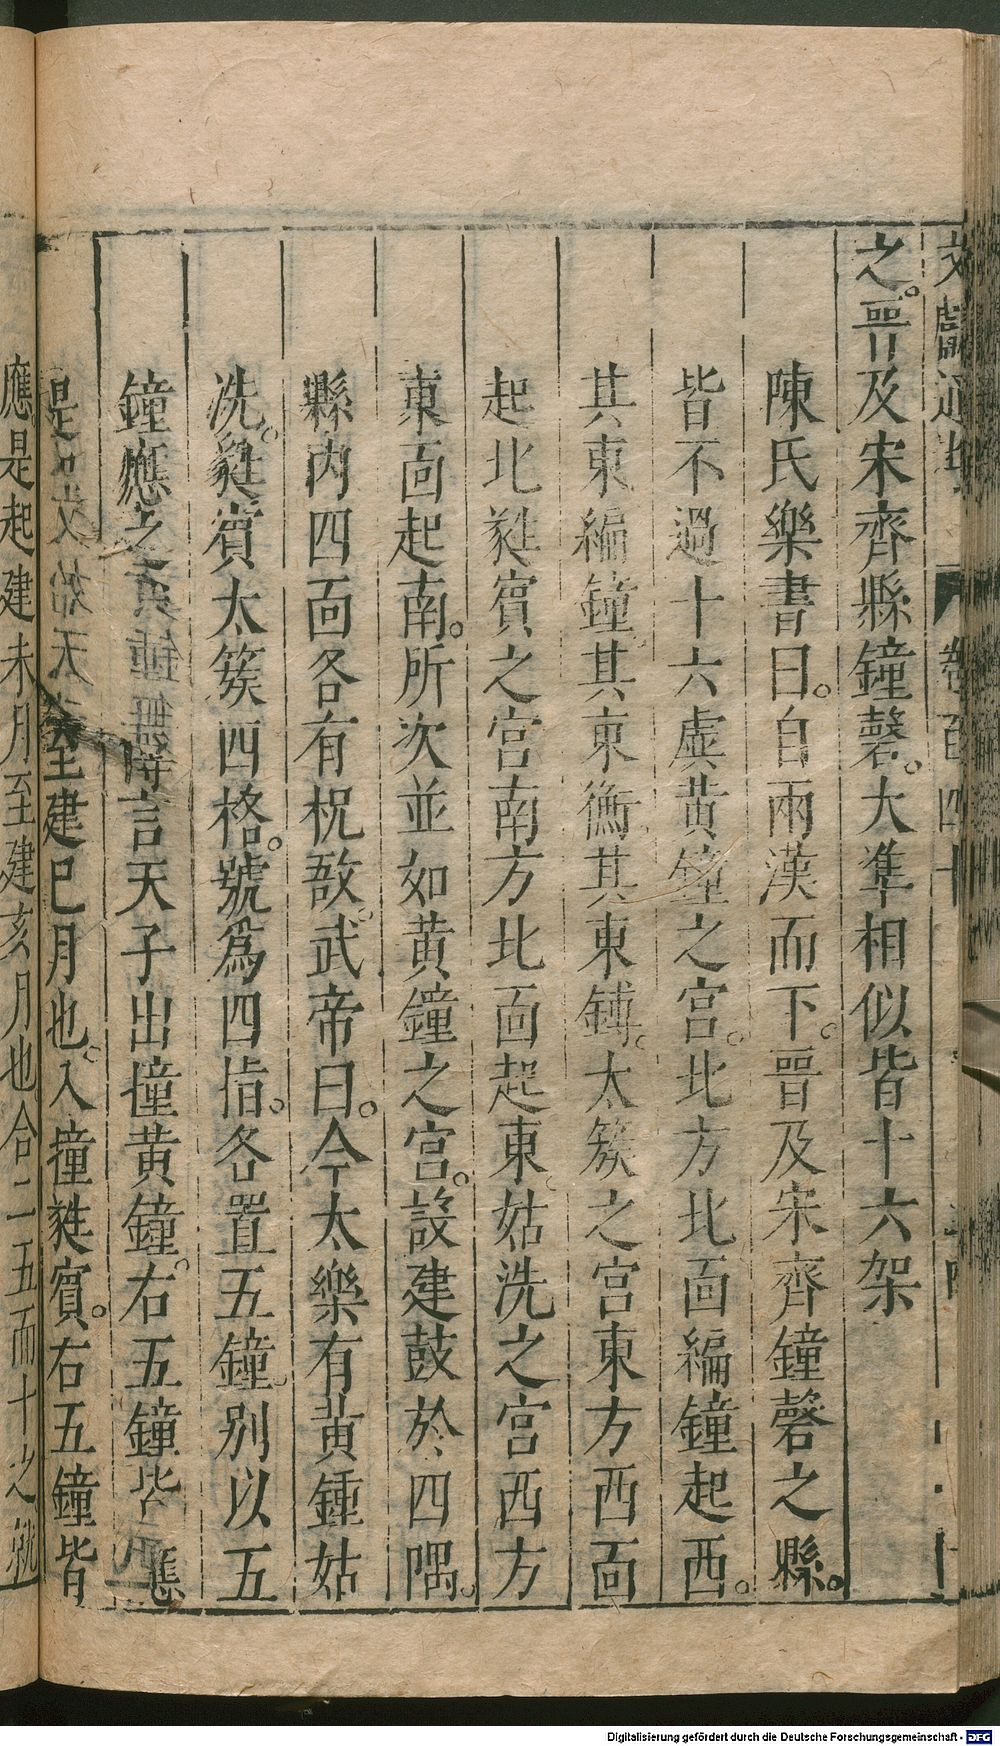 文獻通考 卷百四十
之。晋及宋齊縣鐘磬。大準相似皆十六架
陳氏樂書曰。自兩漢而下。晋及宋齊鐘磬之縣。
皆不過十六虡黄鐘之宫。北方北面編鐘起西。
其東編鐘其東衡其東鎛。太簇之宫東方西面
起北蕤賓之宫南方北面起東姑洗之宫西方
東面起南。所次並如黄鐘之宫。設建鼓於四隅。
縣内四面各有柷敔。武帝曰。今太樂有黄鍾姑
洗。蕤賓太簇四格。號爲四指。各置五鐘别以五
鐘應之 言天子出撞黄鐘。右五鐘皆應
至建巳月也。入撞蕤賓。右五鐘皆
應。是起建未月至建亥月也合二五而十之
Digitalisierung gefördert durch die Deutsche Forschungsgemeinschaft - DFG